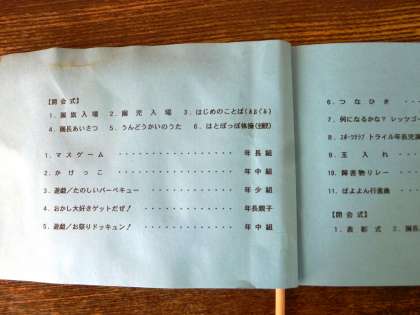 【開会式】
1. 園旗入場 2. 園児入場 3. はじめのことば
4. 園長あいさつ 5. うんどうかいのうた 6. はとぽっぽ体操
1. マスゲーム ・・・・・・・・・・・・ 年長組
2. かけっこ ・・・・・・・・・・・・ 年中組
3. 遊戯/たのしいバーベキュー ・・・・・・・・ 年少組
4. おかし大好きゲットだぜ! ・・・・・・・・ 年長親子
5. 遊戯/お祭りドッキュン! ・・・・・・・・ 年中組
6. つなひき
7. 何になるかな? レッツゴー
8. スポーツクラブ トライル年長児演
9. 玉入れ
10. 障害物リレー
11. ぽよよん行進曲
【閉会式】
1. 表彰式 2. 園長